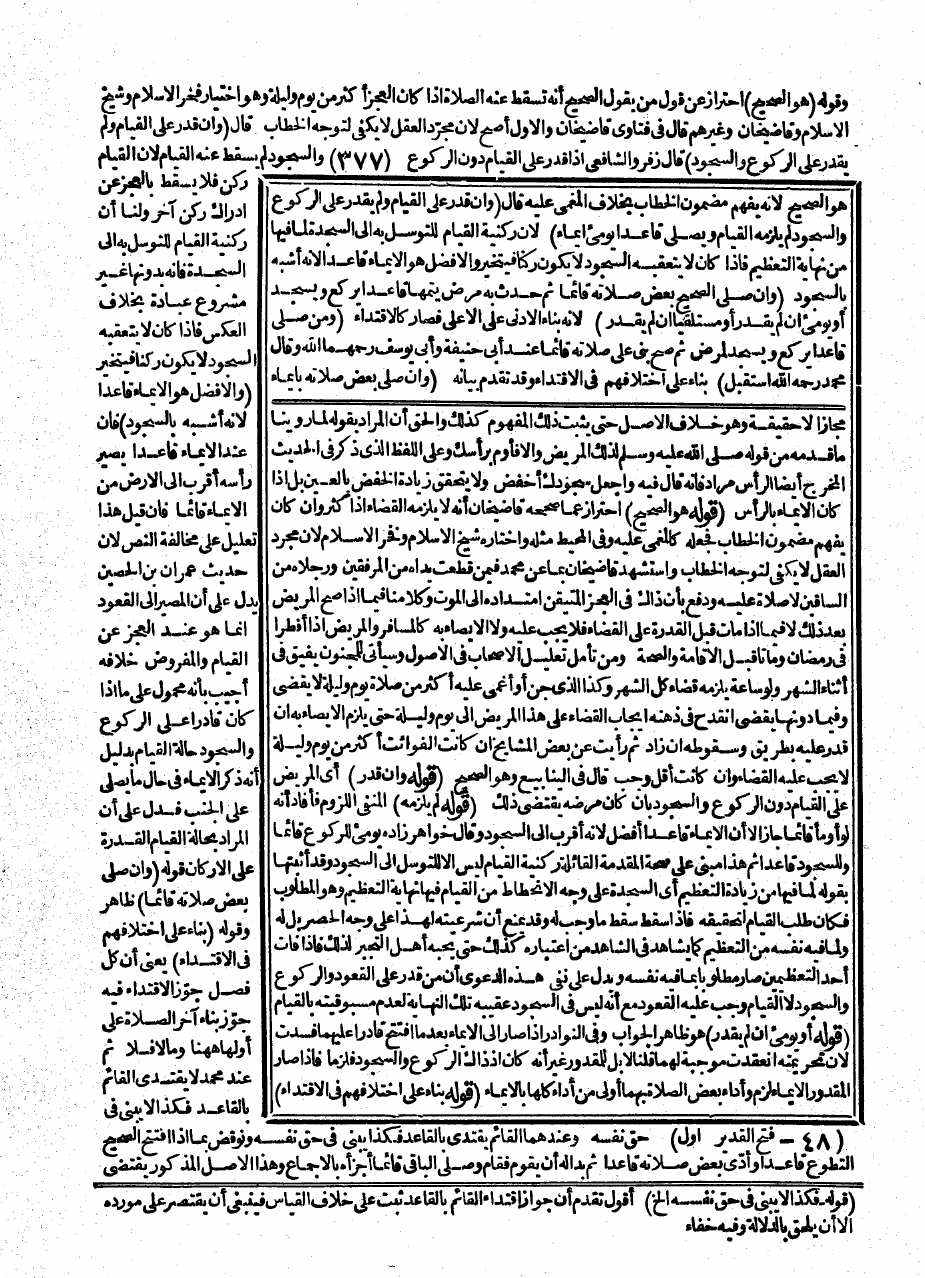 وقوله (هو الصحيح) احتراز عن قول من يقول الصحيح أنه تسقط عنه الصلاة اذا كان العجز أكثر من يوم وليلة وهو اختيار فخر الاسلام وشيخ
الاسلام وقاضيخان وغيرهم قال فى فتاوى قاضيخان والاول أصح لان مجرد العقل لا يكفى لتوجه الخطاب قال (وان قدر على القيام ولم
يقدر على الركوع والسجود) قال زفر والشافعى اذا قدر على القيام دون الركوع (٣٧٧) والسجود لم يسقط عنه القيام لان القيام
ركن فلا يسقط بالعجز عن
ادراك ركن آخر ولنا أن
ركنية القيام للتوسل به الى
السجدة فانه بدونها غير
مشروع عبادة بخلاف
العكس فاذا كان لا يتعقبه
السجود لا يكون ركنا فيتخير
(والافضل هو الايماء قاعدا
لانه أشبه بالسجود) فان
عند الايماء قاعدا يصير
رأسه أقرب الى الارض من
الايماء قائما فان قيل هذا
تعليل على مخالفة النص لان
حديث عمران بن الحصين
يدل على أن المصير الى القعود
انما هو عند العجز عن
القيام والمفروض خلافه
أجيب بأنه محمول على ما اذا
كان قادرا على الركوع
والسجود حالة القيام بدليل
أنه ذكر الايماء فى حال ما يصلى
على الجنب فدل على أن
المراد بحالة القيام القدرة
على الاركان قوله (وان صلى
بعض صلاته قائما) ظاهر
وقوله (بناء على اختلافهم
فى الاقتداء) يعنى أن كل
فصل جوز الاقتداء فيه
جوز بناء آخر الصلاة على
أولها ههنا وما لا فلا ثم
عند محمد لا يقتدى القائم
بالقاعد فكذا لا يبنى فى
هو الصحيح لانه يفهم مضمون الخطاب بخلاف المغمى عليه قال (وان قدر على القيام ولم يقدر على الركوع
والسجود لم يلزمه القيام ويصلى قاعدا يومئ ايماء) لان ركنية القيام للتوسل به الى السجدة لما فيها
من نهاية التعظيم فاذا كان لا يتعقبه السجود لا يكون ركنا فيتخير والافضل هو الايماء قاعدا لانه أشبه
بالسجود (وان صلى الصحيح بعض صلاته قائما ثم حدث به مرض يتمها قاعدا يركع ويسجد
أو يومئ ان لم يقدر أو مستلقيا ان لم يقدر) لانه بناء الادنى على الاعلى فصار كالاقتداء (ومن صلى
قاعدا يركع ويسجد لمرض ثم صح بنى على صلاته قائما عند أبى حنيفة وأبى يوسف رحمهما الله وقال
محمد رحمه الله استقبل) بناء على اختلافهم فى الاقتداء وقد تقدم بيانه (وان صلى بعض صلاته بايماء
مجازا لا حقيقة وهو خلاف الاصل حتى يثبت ذلك المفهوم كذلك والحق أن المراد بقوله لما روينا
ما قدمه من قوله صلى الله عليه وسلم لذلك المريض والا فأوم برأسك وعلى اللفظ الذى ذكر فى الحديث
المخرج أيضا الرأس مراد فانه قال فيه واجعل سجودك أخفض ولا يتحقق زيادة الخفض بالعين بل اذا
كان الايماء بالرأس (قوله هو الصحيح) احتراز عما صححه قاضيخان أنه لا يلزمه القضاء اذا كثر وان كان
يفهم مضمون الخطاب فجعله كالمغمى عليه وفى المحيط مثله واختاره شيخ الاسلام وفخر الاسلام لان مجرد
العقل لا يكفى لتوجه الخطاب واستشهد قاضيخان بما عن محمد فيمن قطعت يداه من المرفقين ورجلاه من
الساقين لا صلاة عليه ودفع بأن ذاك فى العجز المتيقن امتداده الى الموت وكلامنا فيما اذا صح المريض
بعد ذلك لا فيما اذا مات قبل القدرة على القضاء فلا يجب عليه ولا الايصاء به كالمسافر والمريض اذا أفطرا
فى رمضان وماتا قبل الاقامة والصحة ومن تأمل تعليل الاصحاب فى الاصول وسيأتى للمجنون يفيق فى
أثناء الشهر ولو ساعة يلزمه قضاء كل الشهر وكذا الذى جن أو أغمى عليه أكثر من صلاة يوم وليلة لا يقضى
وفيما دونها يقضى انقدح فى ذهنه ايجاب القضاء على هذا المريض الى يوم وليلة حتى يلزم الايصاء به ان
قدر عليه بطريق وسقوطه ان زاد ثم رأيت عن بعض المشايخ ان كانت الفوائت أكثر من يوم وليلة
لا يجب عليه القضاء وان كانت أقل وجب قال فى الينابيع وهو الصحيح (قوله وان قدر) أى المريض
على القيام دون الركوع والسجود بان كان مرضه يقتضى ذلك (قوله لم يلزمه) المنفى اللزوم فأفاد أنه
لو أومأ قائما جاز الا أن الايماء قاعدا أفضل لانه أقرب الى السجود وقال خواهر زاده يومئ للركوع قائما
وللسجود قاعدا ثم هذا مبنى على صحة المقدمة القائلة ركنية القيام ليس الا للتوسل الى السجود وقد أثبتها
بقوله لما فيها من زيادة التعظيم أى السجدة على وجه الانحطاط من القيام فيها نهاية التعظيم وهو المطلوب
فكان طلب القيام لتحقيقه فاذا سقط سقط ما وجب له وقد يمنع أن شرعيته لهذا على وجه الحصر بل له
ولما فيه نفسه من التعظيم كما يشاهد فى الشاهد من اعتباره كذلك حتى يحبه أهل التجبر لذلك فاذا فات
أحد التعظيمين صار مطلوبا بما فيه نفسه ويدل على نفى هذه الدعوى أن من قدر على القعود والركوع
والسجود لا القيام وجب عليه القعود مع أنه ليس فى السجود عقيبه تلك النهاية لعدم مسبوقيته بالقيام
(قوله أو يومئ ان لم يقدر) هو ظاهر الجواب وفى النوادر اذا صار الى الايماء بعدما افتتح قادرا عليهما فسدت
لان تحريمته انعقدت موجبة لهما قلنا لا بل للمقدور غير أنه كان اذ ذاك الركوع والسجود فلزما فاذا صار
المقدور الايماء لزم وأداء بعض الصلاة بهما أولى من أداء كلها بالايماء (قوله بناء على اختلافهم فى الاقتداء)
(٤٨ - فتح القدير اول) حق نفسه وعندهما القائم يقتدى بالقاعد فكذا يبنى فى حق نفسه ونوقض بما اذا افتتح الصحيح
التطوع قاعدا وأدى بعض صلاته قاعدا ثم بدا له أن يقوم فقام وصلى الباقى قائما أجزأه بالاجماع وهذا الاصل المذكور يقتضى
(قوله فكذا لا يبنى فى حق نفسه الخ) أقول تقدم أن جواز اقتداء القائم بالقاعد ثبت على خلاف القياس فينبغى أن يقتصر على مورده
الا أن يلحق بالدلالة وفيه خفاء